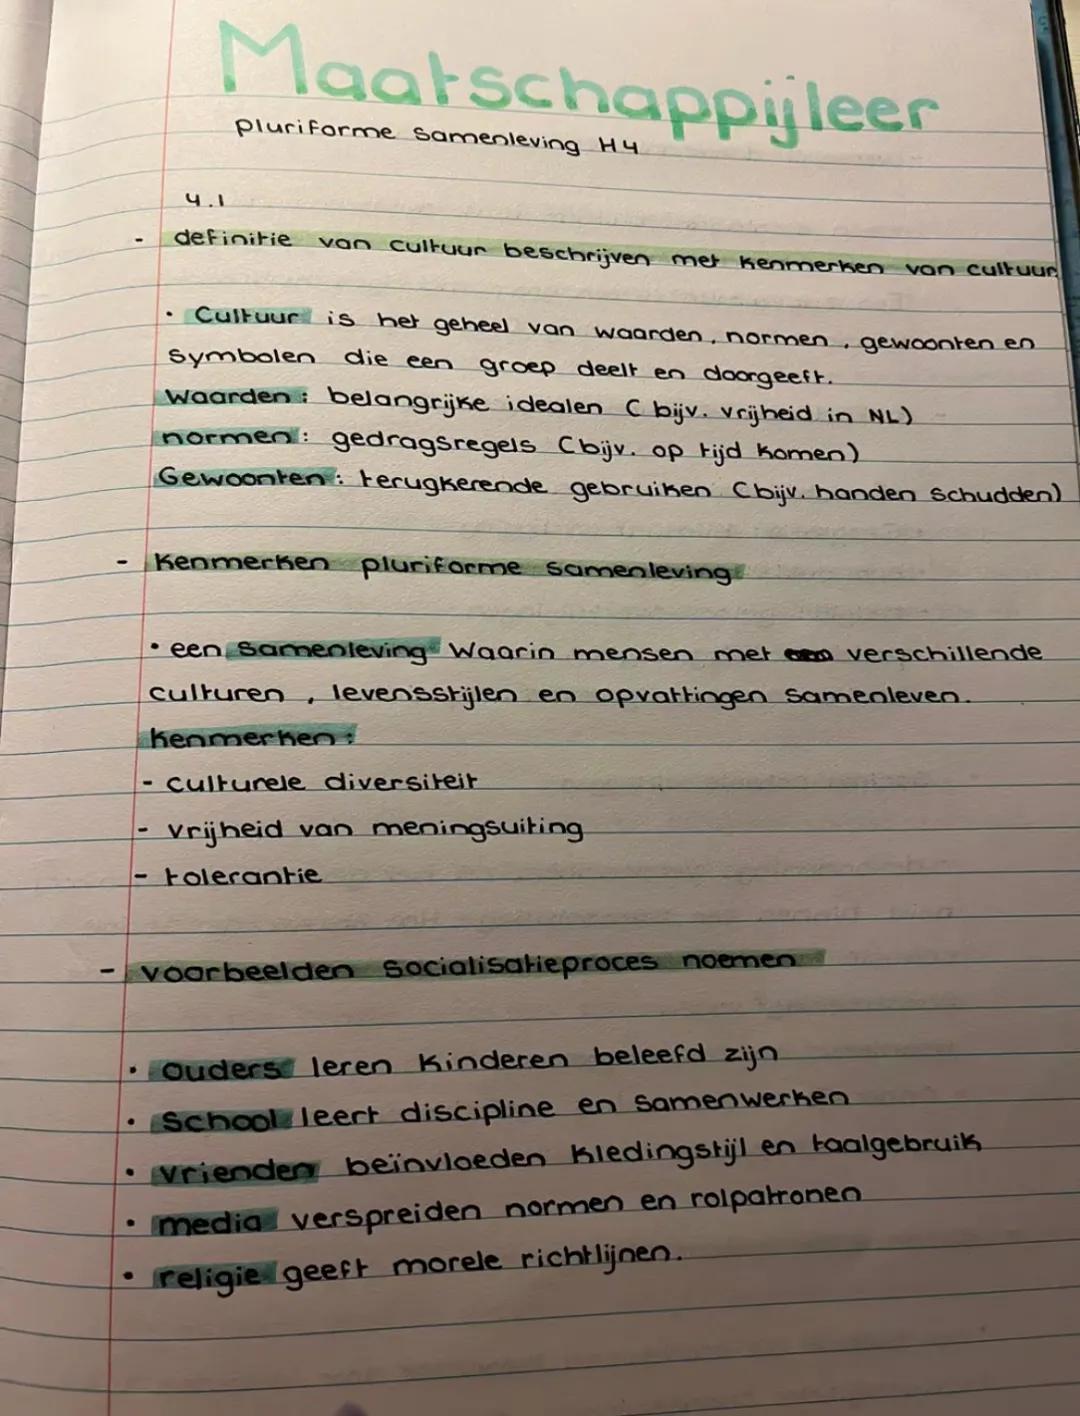 Maatschappijleer
pluriforme samenleving H4
4.1
- definitie van cultuur beschrijven met kenmerken van cultuur
• Cultuur is het geheel van waarden, normen, gewoonten en
symbolen die een groep deelt en doorgeeft.
Waarden: belangrijke idealen (bijv. vrijheid in NL)
normen: gedragsregels (bijv. op tijd komen)
Gewoonten: terugkerende gebruiken (bijv. handen schudden)
- Kenmerken pluriforme samenleving
• een samenleving waarin mensen met verschillende
culturen, levensstijlen en opvattingen samenleven.
Kenmerken:
- culturele diversiteit
- vrijheid van meningsuiting
- tolerantie
- voorbeelden socialisatieproces noemen
• ouders leren kinderen beleefd zijn
• School leert discipline en samenwerken
• vrienden beïnvloeden kledingstijl en taalgebruik
• media verspreiden normen en rolpatronen
• religie geeft morele richtlijnen.